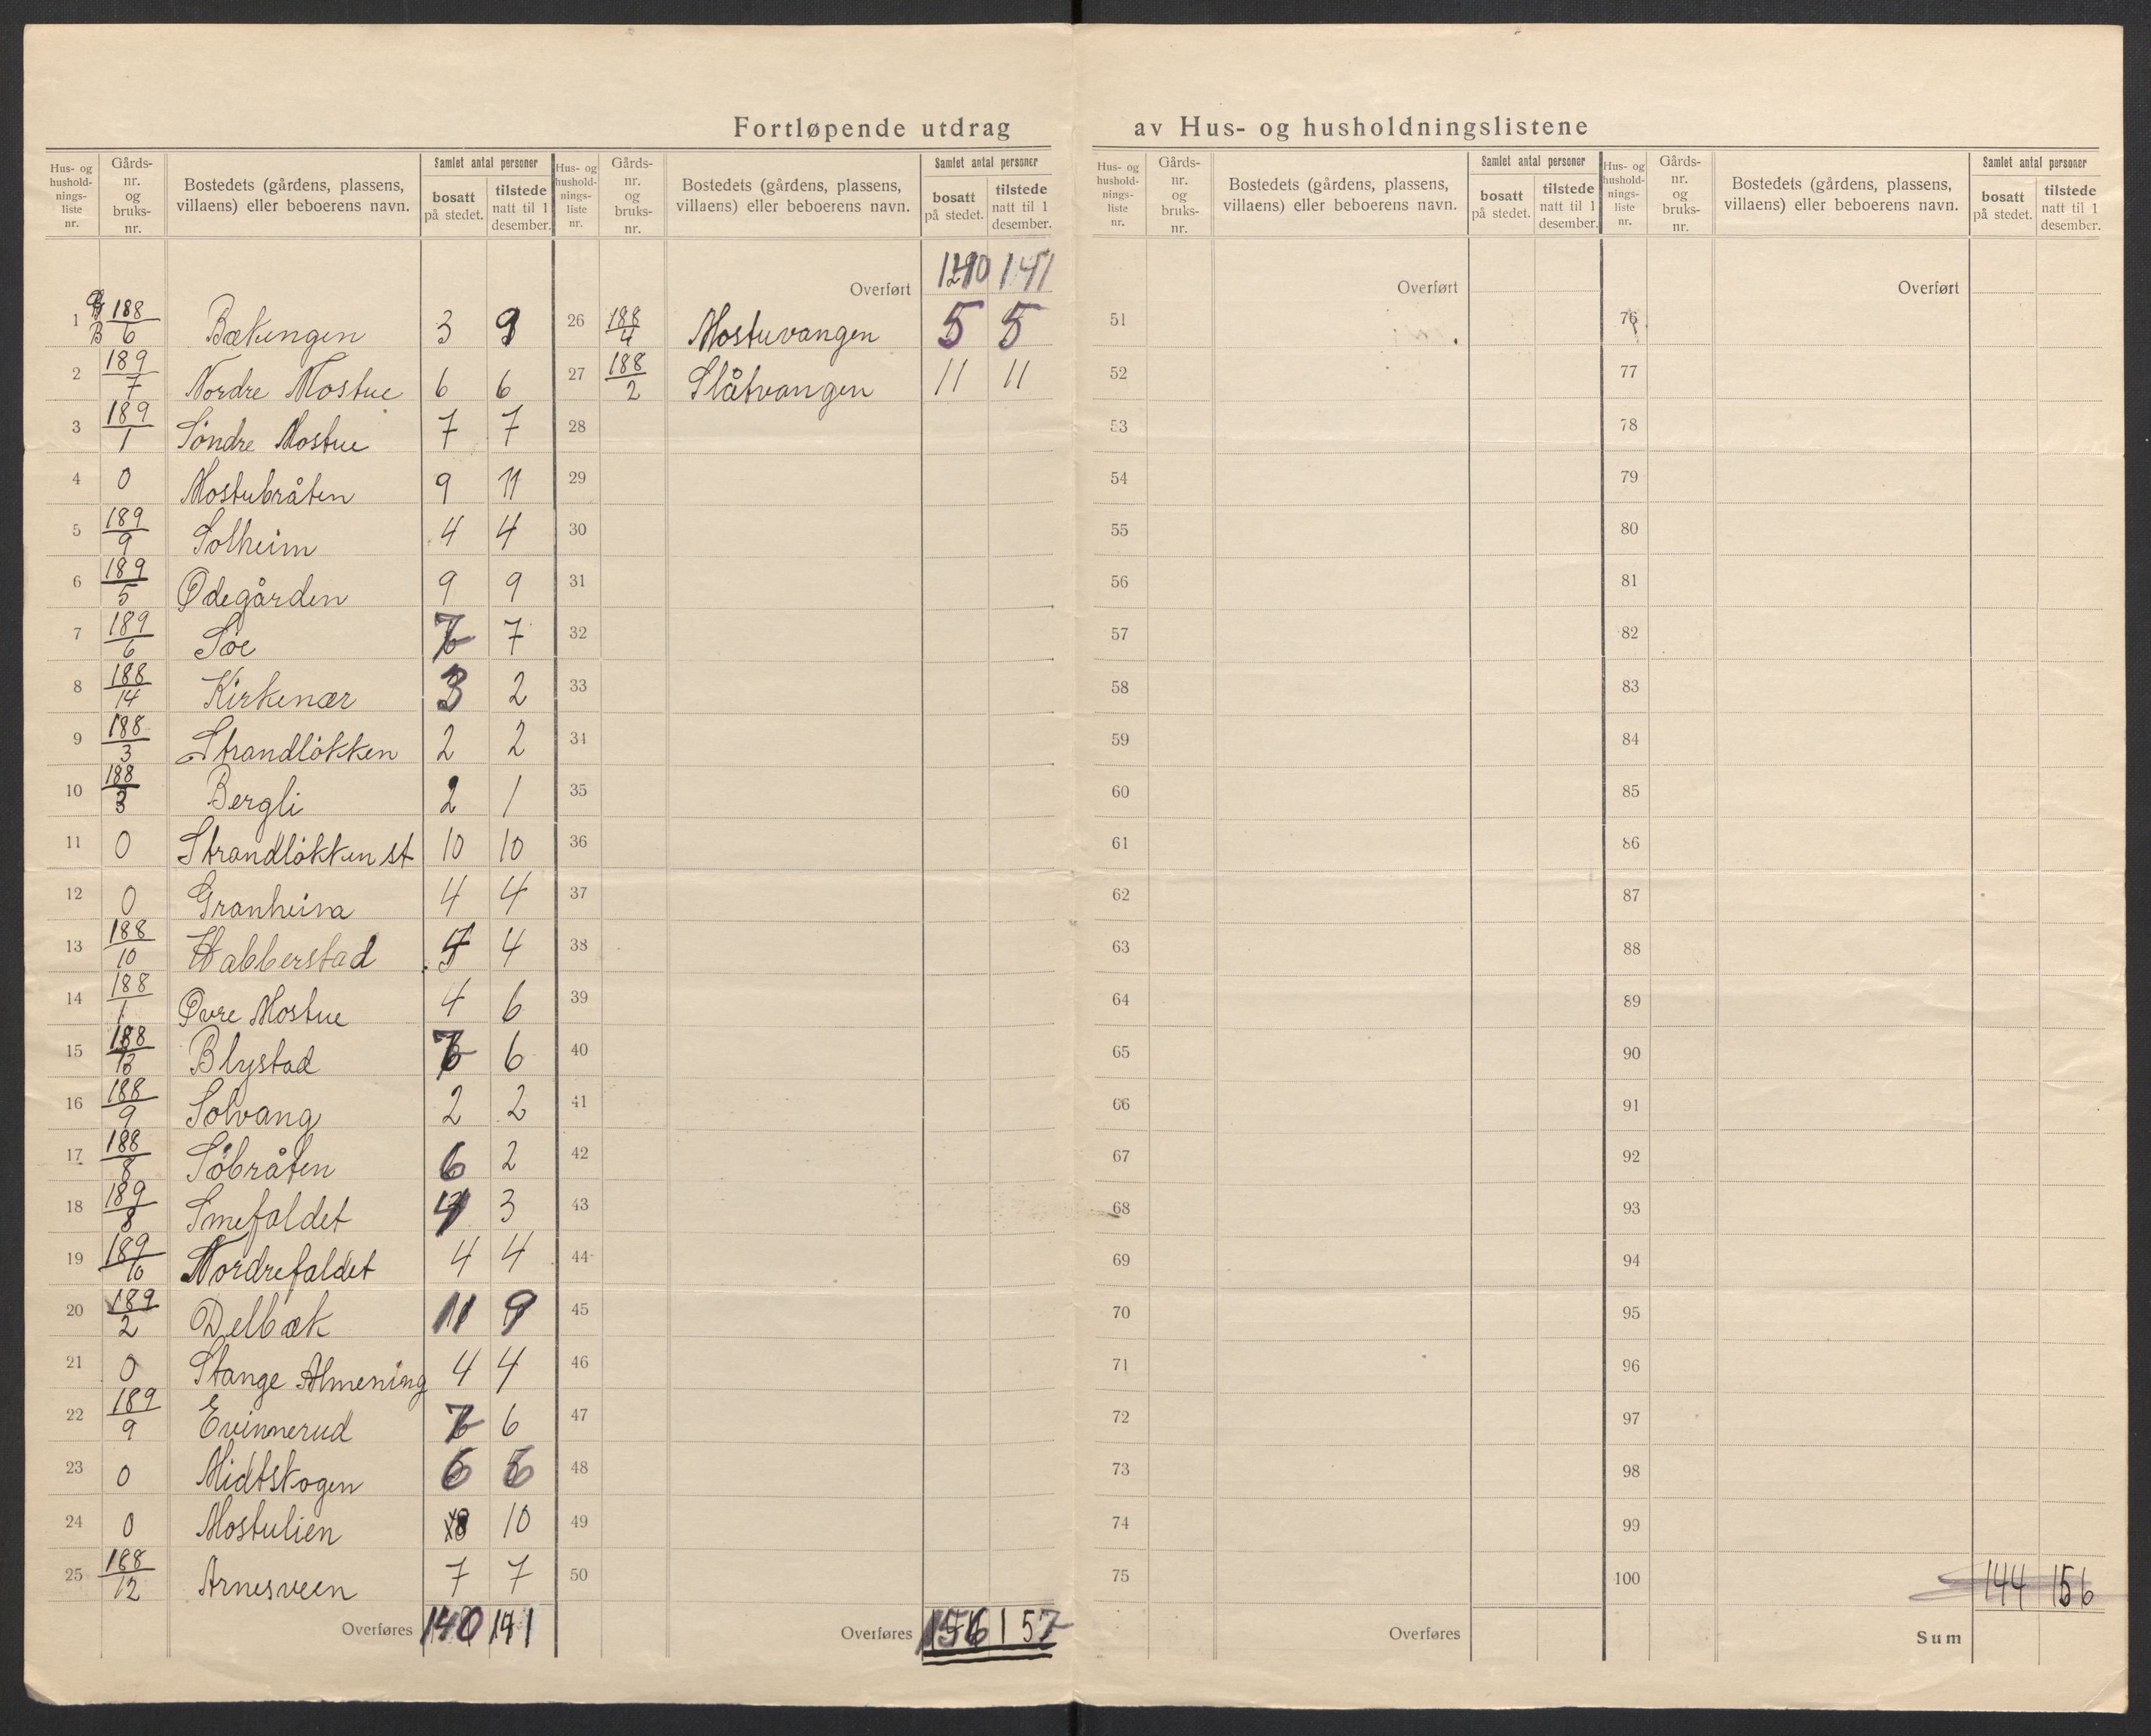 Fortløpende utdrag av Hus- og husholdningslistene
Hus- og hushold-nings-liste nr. Gårds-nr. og bruks-nr. Bostedets (gårdens, plassens, villaens) eller beboerens navn. Samlet antal personer bosatt på stedet. tilstede natt til 1 desember.
Hus- og hushold-nings-liste nr. Gårds-nr. og bruks-nr. Bostedets (gårdens, plassens, villaens) eller beboerens navn. Samlet antal personer bosatt på stedet. tilstede natt til 1 desember.
Hus- og hushold-nings-liste nr. Gårds-nr. og bruks-nr. Bostedets (gårdens, plassens, villaens) eller beboerens navn. Samlet antal personer bosatt på stedet. tilstede natt til 1 desember.
Hus- og hushold-nings-liste nr. Gårds-nr. og bruks-nr. Bostedets (gårdens, plassens, villaens) eller beboerens navn. Samlet antal personer bosatt på stedet. tilstede natt til 1 desember.
1 G 188 B 6 Bækengen 3
2 189/7 Nordre Mostue 6 6
3 189/1 Söndre Mostue 7 7
4 0 Mostubråten 9 11
5 189/9 Solheim 4 4
6 189/5 Ødegården 9 9
7 189/6 Söe 7 7
8 188/14 Kirkenær 3 2
9 188/3 Strandlökken 2 2
10 188/3 Bergli 2 1
11 0 Strandlökken st 10 10
12 0 Granheim 4 4
13 188/10 Habberstad 4
14 188/1 Øvre Mostue 4 6
15 188/13 Blystad 7 6
16 188/9 Solvang 2 2
17 188/8 Söbråten 6 2
18 189/8 Smefaldet 4 3
19 189/10 Nordrefaldet 4 4
20 189/2 Delbæk 11 9
21 0 Stange Almening 4 4
22 189/9 Evinnerud 7 6
23 0 Midtskogen 6 6
24 0 Mostulien 8 10
25 188/12 Arnesveen 7 7
Overføres 140 141
Overført 140 141
26 188/4 Mostuvangen 5 5
27 188/2 Slåtvangen 11 11
28
29
30
31
32
33
34
35
36
37
38
39
40
41
42
43
44
45
46
47
48
49
50
Overføres 156 157
Overført
51
52
53
54
55
56
57
58
59
60
61
62
63
64
65
66
67
68
69
70
71
72
73
74
75
Overføres
Overført
76
77
78
79
80
81
82
83
84
85
86
87
88
89
90
91
92
93
94
95
96
97
98
99
100 144 156
Sum